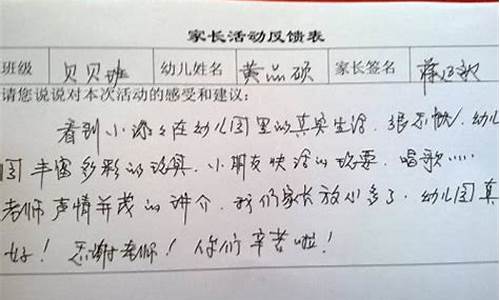 家长活动反馈表
班级 贝贝班 幼儿姓名 黄品硕 家长签名
请您说说对本次活动的感受和建议:
看到小添々在幼儿园里的真实生活,很不错,幼儿
园丰富多彩的 小朋友快活的玩耍,唱歌……
老师声情并茂的讲介,我们家长放心多了,幼儿园真
好!感谢老师!你们辛苦啦!